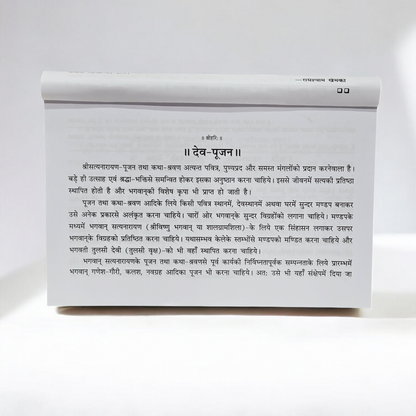 ॥ श्रीहरि: ॥
॥ देव-पूजन ॥
श्रीसत्यनारायण-पूजन तथा कथा-श्रवण अत्यन्त पवित्र, पुण्यप्रद और समस्त मंगलोंको प्रदान करनेवाला है।
बड़े ही उत्साह एवं श्रद्धा-भक्तिसे समन्वित होकर इसका अनुष्ठान करना चाहिये। इससे जीवनमें सत्यकी प्रतिष्ठा
स्थापित होती है और भगवान्‌की विशेष कृपा भी प्राप्त हो जाती है।
पूजन तथा कथा-श्रवण आदिके लिये किसी पवित्र स्थानमें, देवस्थानमें अथवा घरमें सुन्दर मण्डप बनाकर
उसे अनेक प्रकारसे अलंकृत करना चाहिये। चारों ओर भगवान्‌के सुन्दर विग्रहोंको लगाना चाहिये। मण्डपके
मध्यमें भगवान् सत्यनारायण (श्रीविष्णु भगवान् या शालग्रामशिला)-के लिये एक सिंहासन लगाकर उसपर
भगवान्‌के विग्रहको प्रतिष्ठित करना चाहिये। यथासम्भव केलेके स्तम्भोंसे मण्डपको मण्डित करना चाहिये और
भगवती तुलसी देवी (तुलसी वृक्ष)-को भी वहाँ स्थापित करना चाहिये।
भगवान् सत्यनारायणके पूजन तथा कथा-श्रवणसे पूर्व कार्यकी निर्विघ्नतापूर्वक सम्पन्नताके लिये प्रारम्भमें
भगवान् गणेश-गौरी, कलश, नवग्रह आदिका पूजन भी करना चाहिये। अत: उसे भी यहाँ संक्षेपमें दिया जा